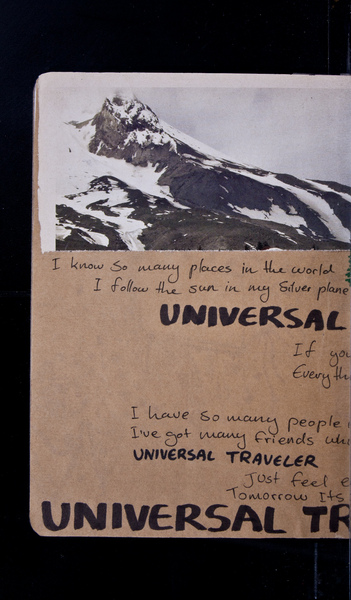 I know so many places in the world
I follow the sun in my Silver plane
UNIVERSAL
If you
Everyth
I have so many people
I've got many friends who
UNIVERSAL TRAVELER
Just feel e
Tomorrow Its
UNIVERSAL TR